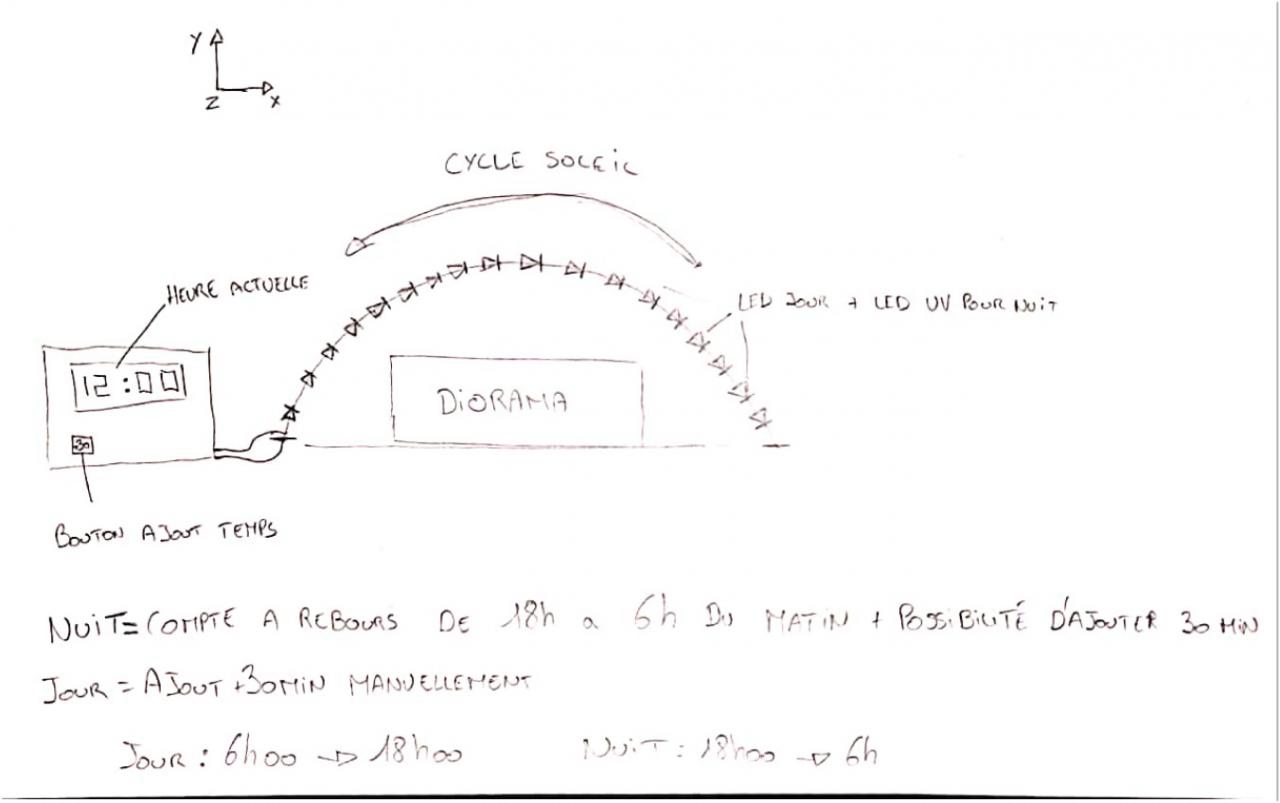 Y
Z X
CYCLE SOLEIL
HEURE ACTUELLE
LED JOUR + LED UV POUR NUIT
12:00
DIORAMA
30
BOUTON AJOUT TEMPS
NUIT = COMPTE A REBOURS DE 18h a 6h DU MATIN + POSSIBILITÉ D'AJOUTER 30 MIN
JOUR = AJOUT +30MIN MANUELLEMENT
JOUR : 6h00 → 18h00 NUIT : 18h00 → 6h